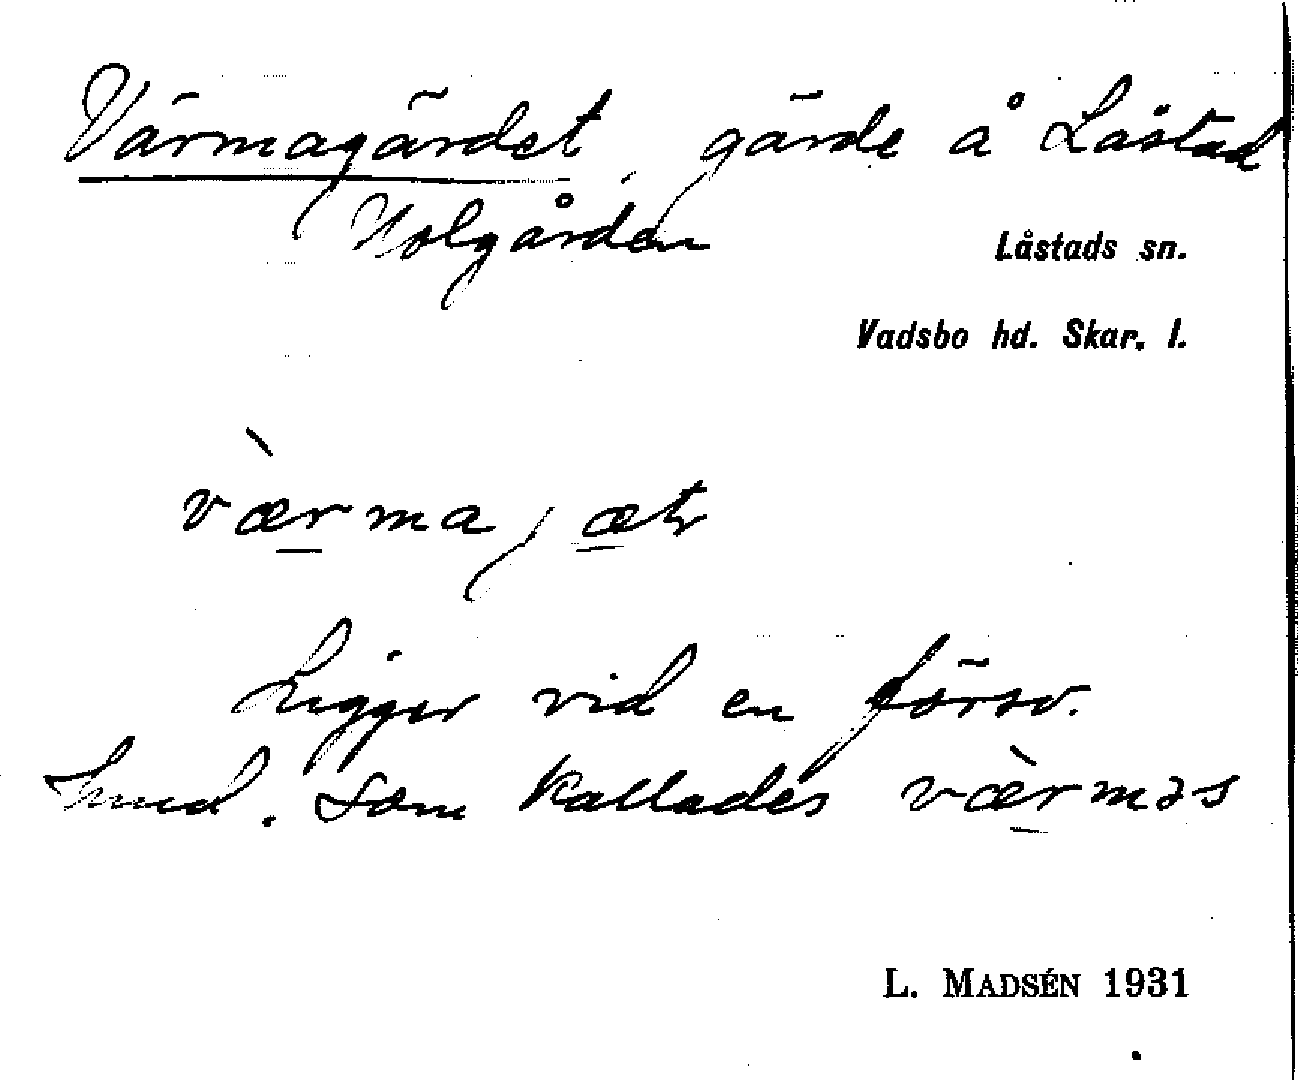 Värmagärdet, gärde å Låstad
Holgården
Låstads sn.
Vadsbo hd. Skar. l.
vǽrmajætr
Ligger vid en försv.
smed. som kallades værmas
L. MADSÉN 1931